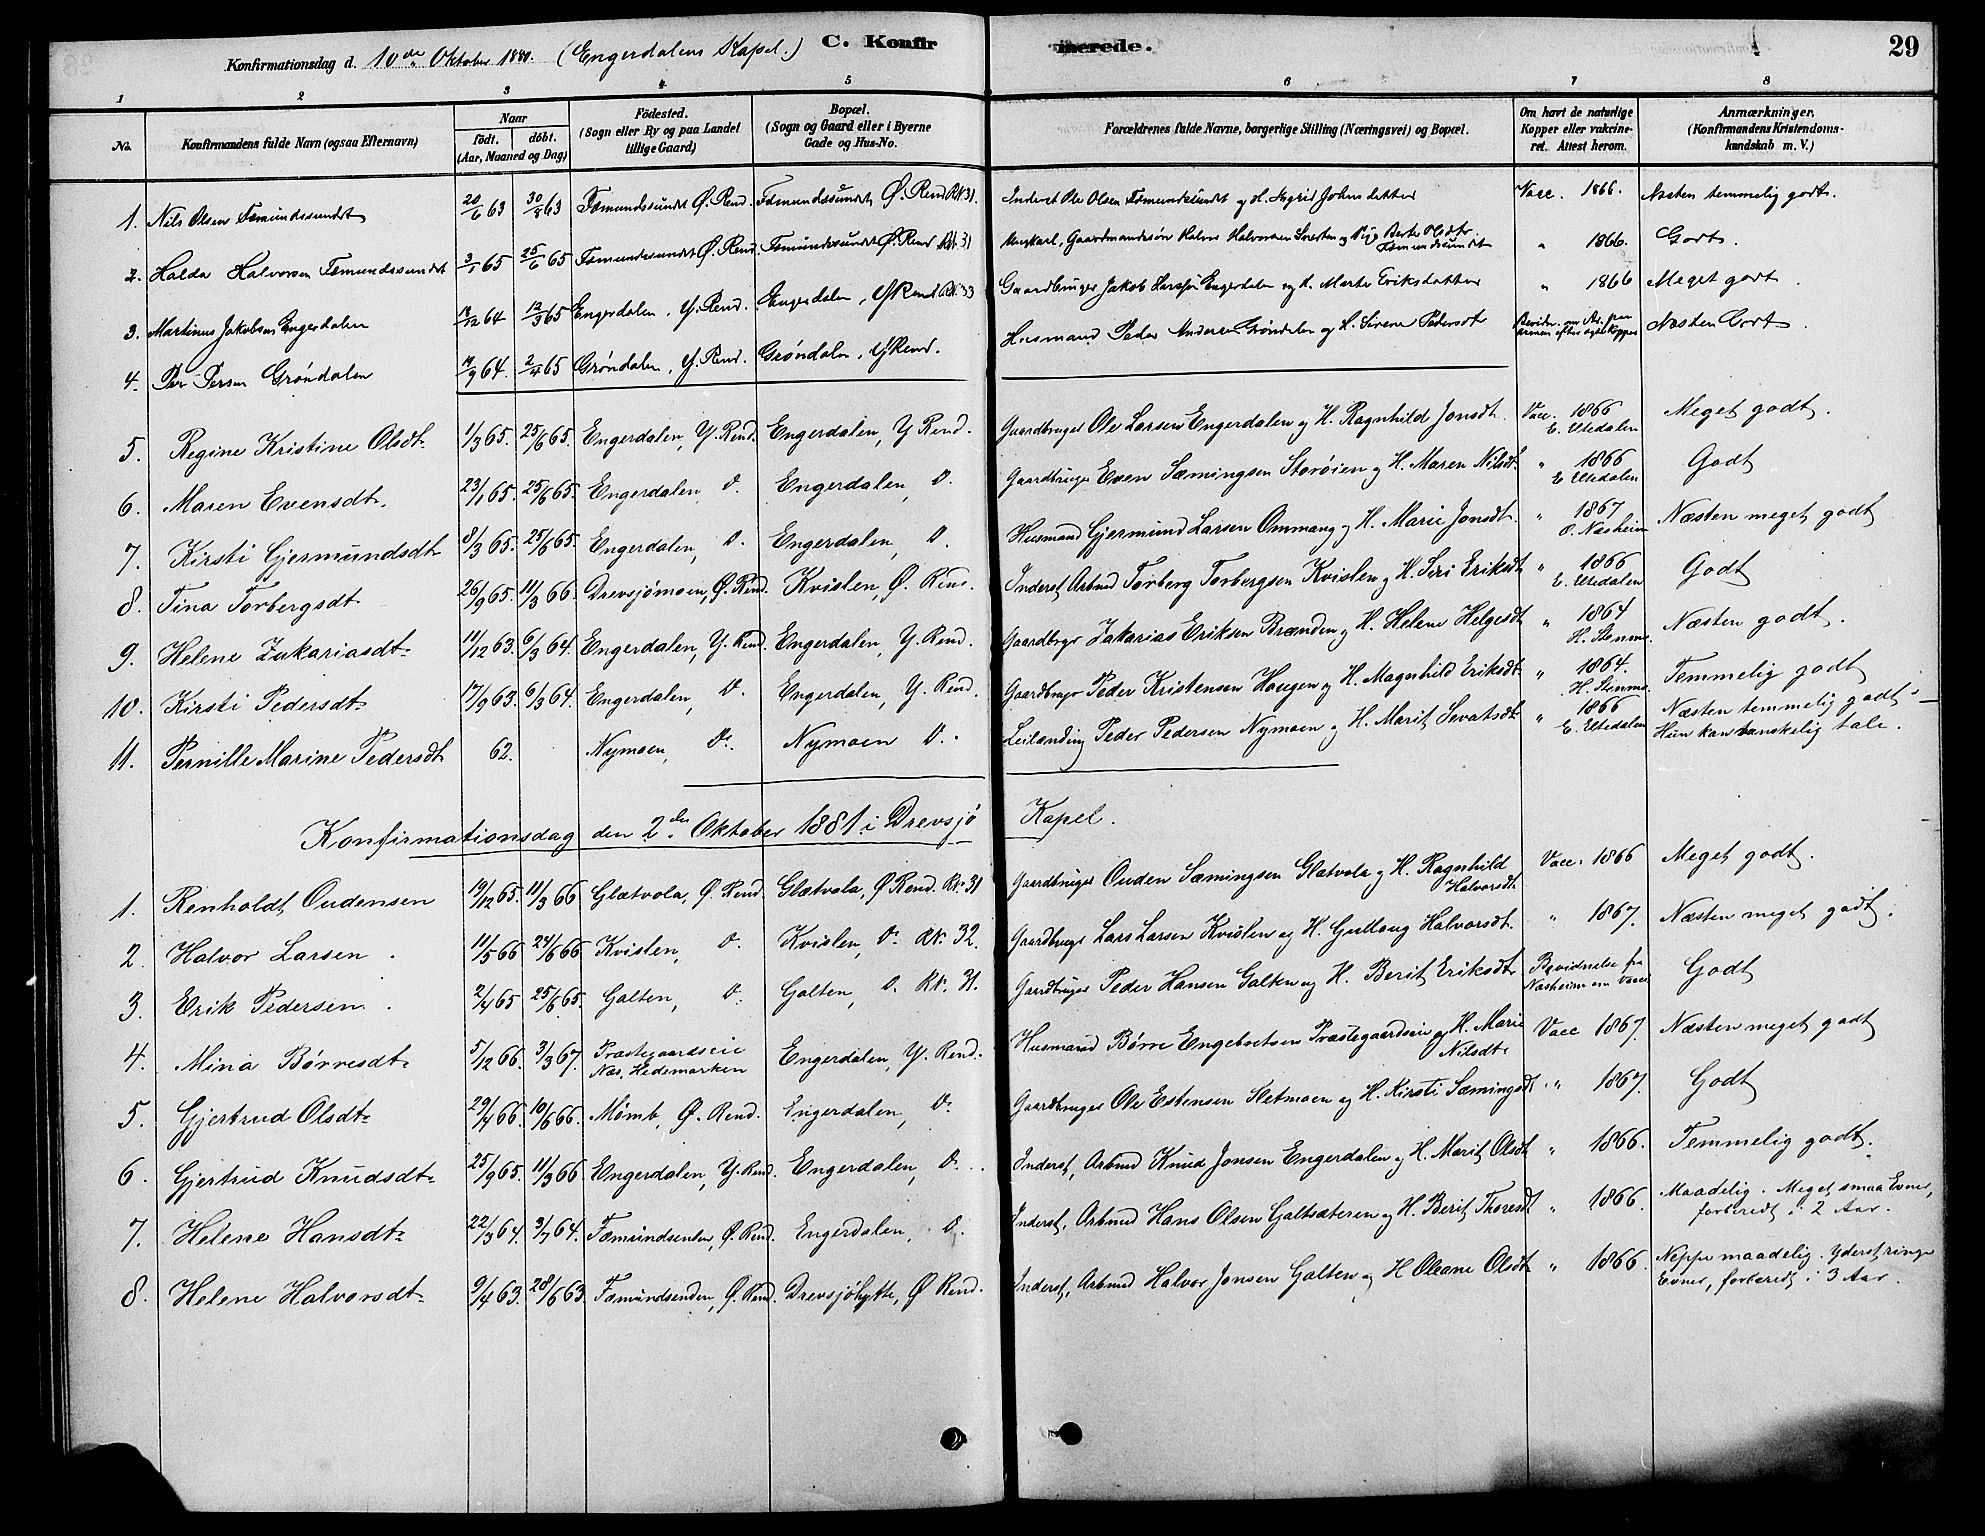 Konfirmationsdag d. 10de Oktober 1880. (Engerdalens Kapel.) C. Konfir merede. 29
1 2 3 4 5 6 7 8
No. Konfirmandens fulde Navn (ogsaa Efternavn) Naar født. døbt. (Aar, Maaned og Dag) Födested. (Sogn eller By og paa Landet tillige Gaard) Bopæl. (Sogn og Gaard eller i Byerne Gade og Hus-No. Forældrenes fulde Navne, borgerlige Stilling (Næringsvei) og Bopæl. Om havt de naturlige Kopper eller vakcineret. Attest herom. Anmærkninger. (Konfirmandens Kristendomskundskab m. V.)
1. Nils Olsen Fæmundssundet 20/6 63 30/8 63 Fæmundssundet Ø. Rend. Fæmundssundet Ø. Rend RN 31. Inderst Ole Olsen Fæmundssundet og H. Sigrid Johnsdatter Vacc. 1866. Næsten temmelig godt.
2. Halda Halvorsen Fæmundssundet 3/1 65 25/6 65 Fæmundssundet Ø. Rend. Fæmundssundet Ø. Rend RN. 31 Ungkarl, Gaardmandssøn Halvor Halvorsen og Pige Berte Fæmundssundet " 1866. Godt.
3. Martinus Jakobsen Engerdalen 18/12 64 12/3 65 Engerdalen, Y. Rend. Engerdalen, Y Rend RN. 33 Gaardbruger Jakob Larssen Engerdalen og H. Marte Eriksdatter " 1866 Meget godt
4. Per Persen Grøndalen 19/9 64. 2/4 65 Grøndalen, Y. Rend. Grøndalen, Y Rend. Husmand Peder Andersen Grøndalen og H. Sirene Pedersdt Bevidn. om Ar paa armen efter ægte Kopper Næsten Godt.
5. Regine Kristine Olsdt. 11/3 65. 25/6 65. Engerdalen, Y. Rend. Engerdalen, Y Rend. Gaardbruger Ole Larsen Engerdalen og H. Ragnhild Jonsdt. Vacc. 1866 E. Eltedalen Meget godt.
6. Maren Evensdt. 23/1 65. 25/6 65. Engerdalen, D. Engerdalen, D. Gaardbruger Even Sæmingsen Storøien og H. Maren Nilsdt. " 1866 E. Eltedalen Godt
7. Kirsti Gjermundsdt 8/3 65. 25/6 65. Engerdalen, D. Engerdalen, D. Husmand Gjermund Larsen Ommang og H. Marie Jonsdt. " 1867 O. Næsheim Næsten meget godt
8. Tina Torbergsdt. 26/9 65. 11/3 66. Drevsjømoen, Ø. Rend. Kvislen, Ø. Rend. Inderst Arbmd Torberg Torbergsen Kvislen og H. Siri Eriksdt " 1866 E. Eltedalen Godt
9. Helene Zakariasdt. 11/12 63. 6/3 64. Engerdalen, Y. Rend. Engerdalen, Y. Rend. Gaardbrgr Zakarias Eriksen Brænden og H. Helene Helgesdt " 1864 H. Stenms. Næsten godt.
10. Kirsti Pedersdt. 17/9 63. 6/3 64. Engerdalen, D. Engerdalen, Y. Rend. Gaardbrugr Peder Kristensen Haugen og H. Magnhild Eriksdt " 1864. H. Stenms. Temmelig godt
11. Pernille Marine Pedersdt 62. Nymoen, D. Nymoen D. Leilænding Peder Pedersen Nymoen og H. Marit Sevatsdt " 1866 E. Eltedalen Næsten temmelig godt - Hun kan vanskelig tale.
Konfirmationsdag den 2den Oktober 1881 i Drevsjø Kapel.
1. Renholdt Oudensen 19/12 65. 11/3 66 Glætvola, Ø. Rend. Glætvola, Ø Rend. RN. 31 Gaardbruger Ouden Sæmingsen Glætvola og H. Ragnhild Halvorsdt. Vacc. 1866 Meget godt.
2. Halvor Larsen. 11/5 66 24/6 66. Kvislen, D. Kvislen, D. RN. 32. Gaardbruger Lars Larsen Kvislen og H. Gulloug Halvorsdt. " 1867. Næsten meget godt.
3. Erik Pedersen. 2/4 65 25/6 65. Galten, D. Galten, D. RN. 31. Gaardbruger Peder Hansen Galten og H. Berit Eriksdt. Bevidnelse fra Næsheim om Vacc. Godt
4. Mina Børresdt. 5/12 66. 3/3 67. Præstegaardseie Næs, Hedemarken Engerdalen, Y. Rend. Husmand Børre Engebretsen Præstegaardseie og H. Marie Nilsdt. Vacc 1867. Næsten meget godt
5. Gjertrud Olsdt. 29/4 66. 10/6 66. Mømb, Ø. Rend. Engerdalen, D. Gaardbruger Ole Estensen Sletmoen og H. Kirsti Sæmingsdt. " 1867. Godt
6. Gjertrud Knudsdt. 25/9 65. 11/3 66 Engerdalen, Y. Rend. Engerdalen, D. Inderst, Arbmd Knud Jonsen Engerdalen og H. Marit Olsdt " 1866. Temmelig godt.
7. Helene Hansdt. 22/3 64. 3/7 64. Fæmundsenden, Ø. Rend. Engerdalen, D. Inderst, Arbmd Hans Olsen Galtsæteren og H. Berit Thoresdt " 1866. Maadelig. Meget smaa Evner, forberedt i 2 Aar.
8. Helene Halvorsdt. 9/4 63. 28/6 63. Fæmundsenden, Ø. Rend. Drevsjøhytte, Ø Rend. Inderst, Arbmd Halvor Jonsen Galten og H Oleane Olsdt " 1866. Neppe maadelig. Yderst ringe Evner, forberedt i 3 Aar.